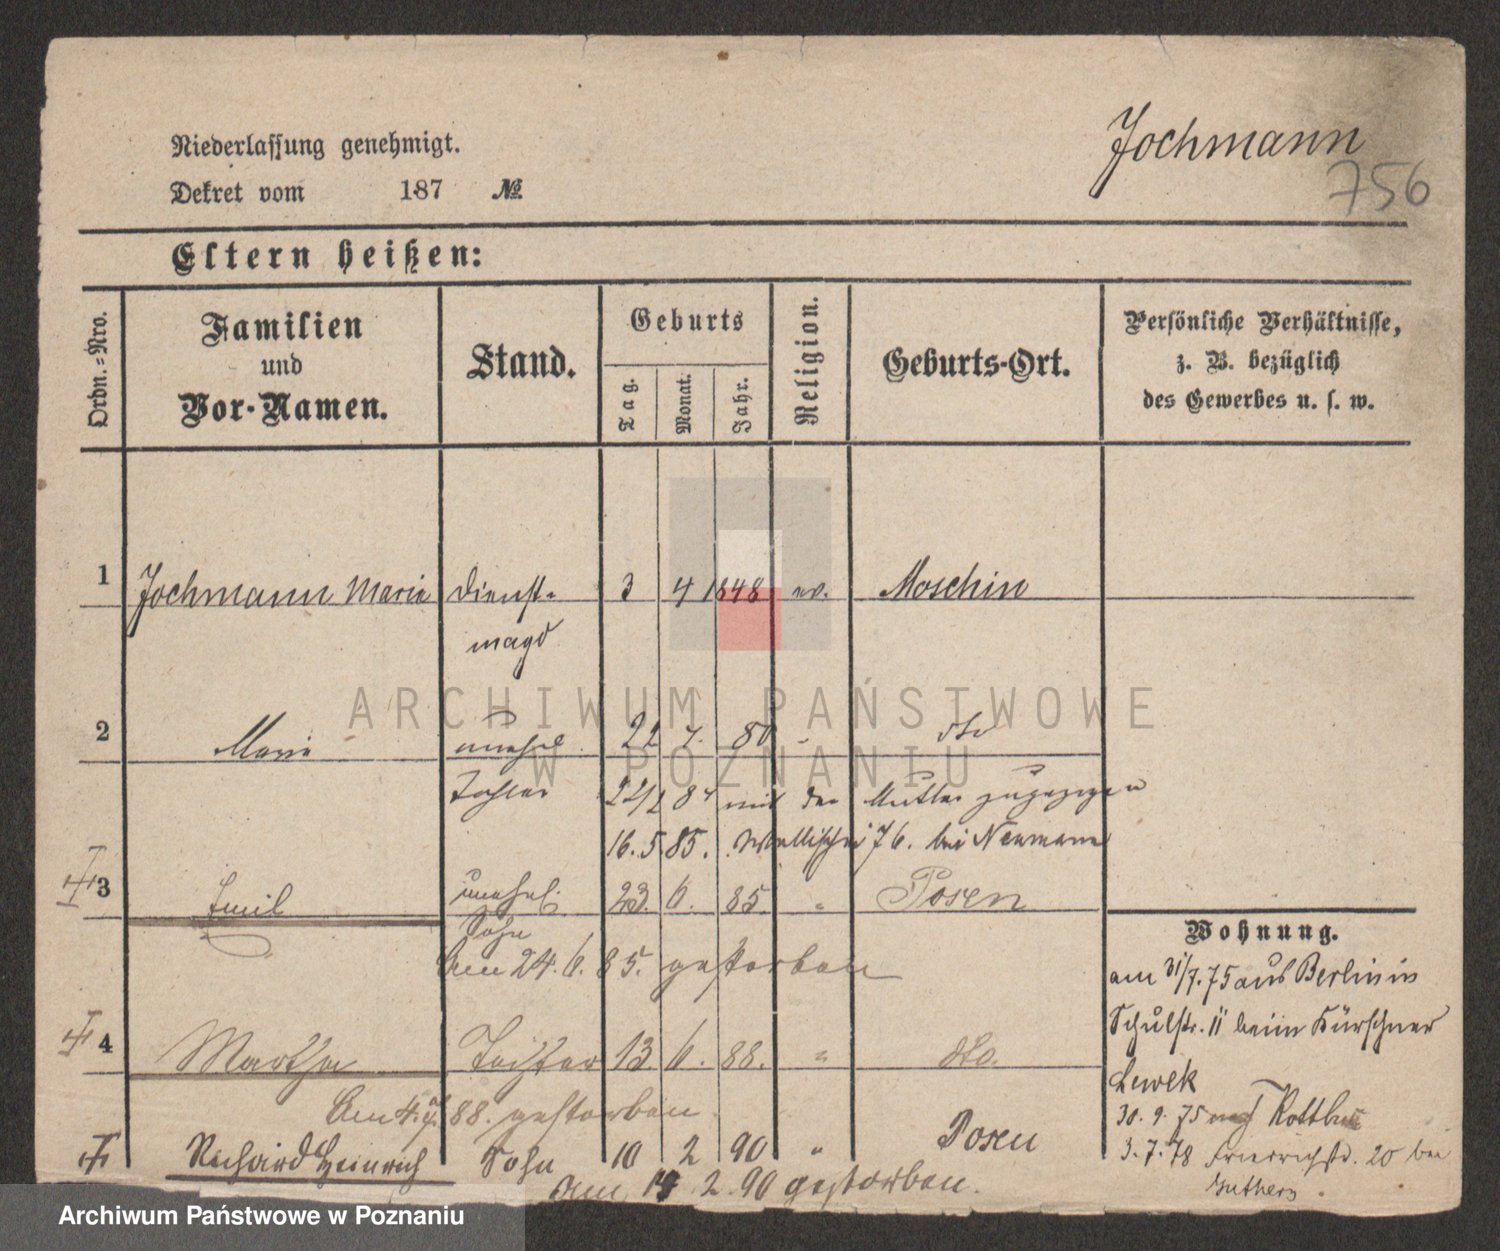 Jochmann
756
Niederlassung genehmigt.
Dekret vom 187 №
Eltern heißen:
Ordn.=Nro.
Familien
und
Vor-Namen.
Stand.
Geburts
Tag.
Monat.
Jahr.
Religion.
Geburts-Ort.
Persönliche Verhältnisse,
z. B. bezüglich
des Gewerbes u. s. w.
1 Jochmann Marie Dienst- 3 4 1848 ev. Moschin
magd
2 Marie unehel. 22 7. 80 - dto
Tochter 22/2 84 mit der Mutter zugezogen
16. 5. 85. Wallischei 76. bei Neumann
3 Emil unehel. 23. 6. 85. " Posen
Sohn
Am 24. 6. 85. gestorben
4 Martha Tochter 13. 6. 88. " dto.
Am 4. 7. 88. gestorben
Richard Heinrich Sohn 10 2 90 " Posen
Am 2. 90 gestorben.
Wohnung.
am 31/7. 75 aus Berlin in
Schulstr. 11 beim Kürschner
Lewek
30. 9. 75 nach
3. 7. 78 Friedrichstr. 20 bei
ARCHIWUM PAŃSTWOWE
W POZNANIU
Archiwum Państwowe w Poznaniu